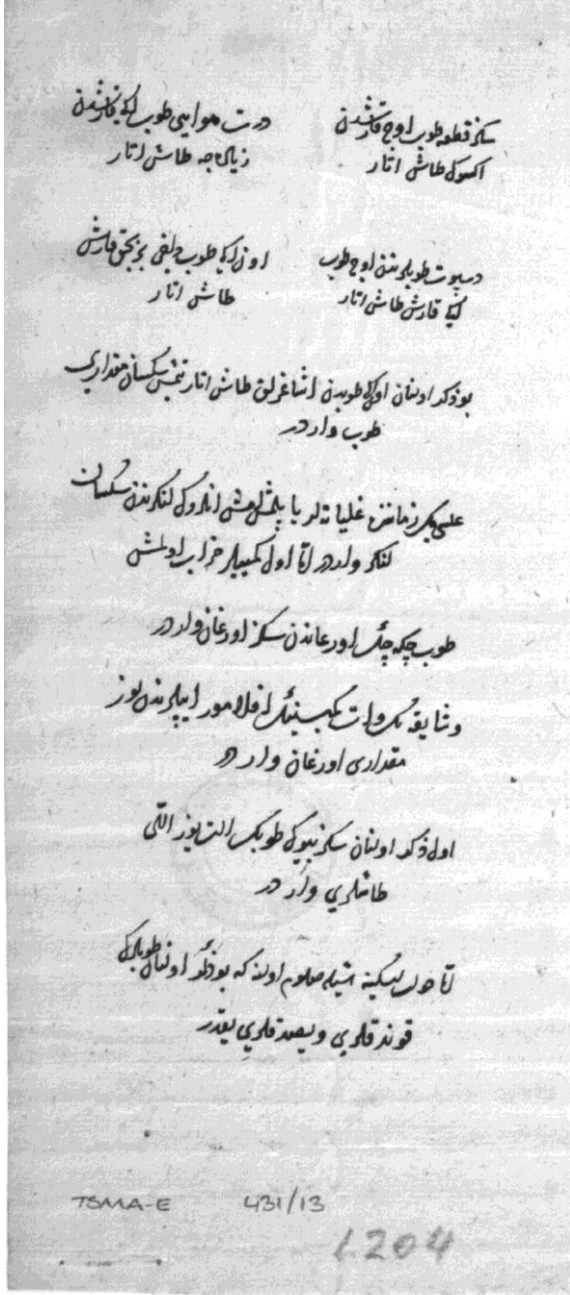 سكز قطعه طوب اوچ قارشدن
اكسوك طاش اتار
درت هوايى طوب ايكى قارشدن
زياده جه طاش اتار
طوبلرندن اوچ طوب
ايكى قارش طاش اتار
اون ايكى طوب دخى بر بچق قارش
طاش اتار
بو ذكر اولنان اون ايكى طوبدن اشاغرلق طاش اتار يتمش سكسان مقدارى
طوب وار در
على بك زماننده لنكرندن سكسان
لنكر وار در اما اول كميلر خراب اولمش
طوب چكه جك اورغاندن سكز اورغان وار در
ايپلرندن يوز
مقدارى اورغان وار در
اول ذكر اولنان سكز بيوك طوبك التيوز اللى
طاشلرى وار در
اما شيله معلوم اولنه كه بو ذكر اولنان طوبلرك
قونداقلرى ويصدقلرى يقدر
TSMA-E 431/13
1204